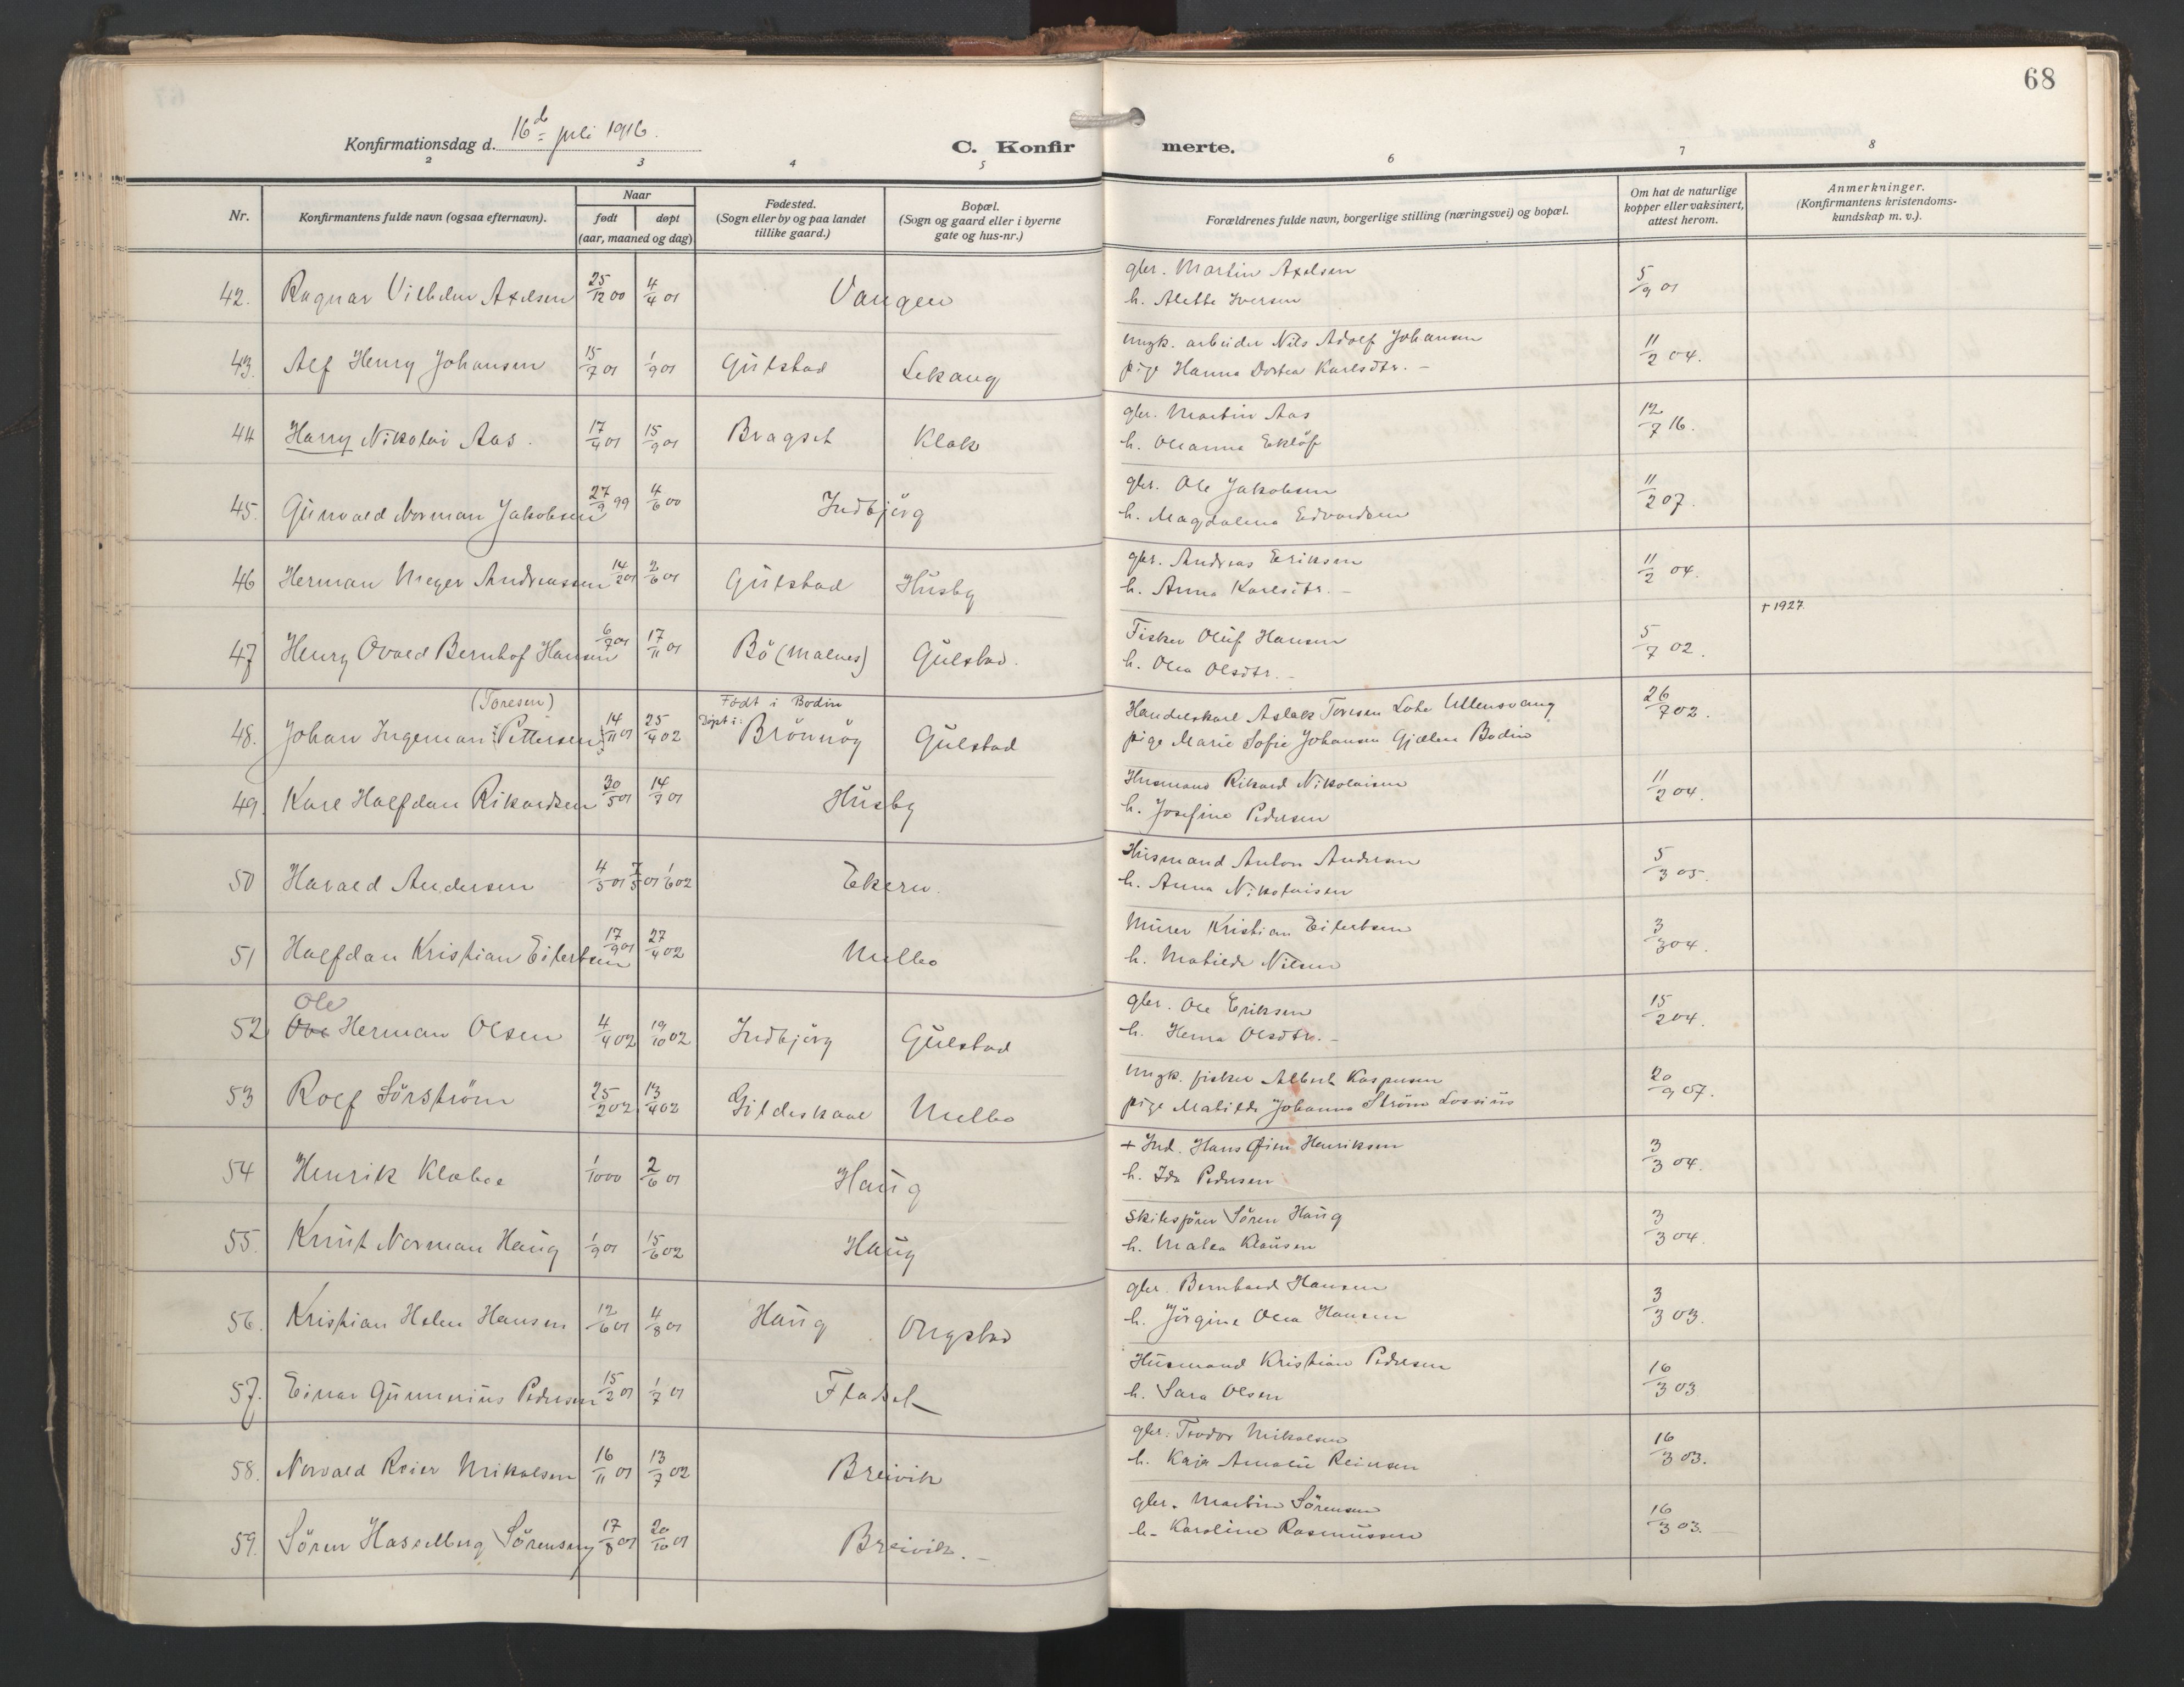 68
Konfirmationsdag d. 16d= juli 1916.
C. Konfirmerte.
2 3 4 5 6 7 8
Nr.
Konfirmantens fulde navn (ogsaa efternavn).
Naar
født døpt
(aar, maaned og dag)
Fødested.
(Sogn eller by og paa landet
tillike gaard.)
Bopæl.
(Sogn og gaard eller i byerne
gate og hus-nr.)
Forældrenes fulde navn, borgerlige stilling (næringsvei) og bopæl.
Om hat de naturlige
kopper eller vaksinert,
attest herom.
Anmerkninger.
(Konfirmantens kristendoms-
kundskap m. v.).
42. Ragnar Vilhelm Axelsen 25/12 00 4/4 01 Vangen
gbr. Martin Axelsen 5/9 01
h. Alette Iversen
43. Alf Henry Johansen 15/7 01 1/9 01 Gulstad Lekang
ungk. arbeider Nils Adolf Johansen 11/2 04.
pige Hanna Dortea Karlsdtr. -
44 Harry Nikolai Aas. 17/4 01 15/9 01 Bragset Klak
gbr. Martin Aas 12/7 16.
h. Oleanna Eklöf
45. Gunvald Norman Jakobsen 27/9 99 4/6 00 Indbjörg
gbr. Ole Jakobsen 11/2 07.
h. Magdalena Edvardsen
46 Herman Meyer Andreassen 14/2 01 2/6 01 Gulstad Husby
gbr. Andreas Eriksen 11/2 04.
h. Anna Karlsdtr. -
† 1927
47 Henry Ovald Bernhof Hansen 6/7 01 17/11 01 Bö (Malnes) Gulstad.
Fisker Oluf Hansen 5/7 02.
h. Olea Olsdtr. -
(Toresen) Född i Bodin
48. Johan Ingeman Pettersen 14/11 01 25/4 02 Døpt i: Brönnöy Gulstad
Handelskarl Aslak Toresen Lote Ullensvang 26/7 02.
pige Marie Sofie Johansen Gjælen Bodin
49. Karl Halfdan Rikardsen 30/5 01 14/7 01 Husby
Husmand Rikard Nikolaisen 11/2 04.
h. Josefine Pedersen
50 Harald Andersen 4/5 01 7/5 01 1/6 02 Ekern.
Husmand Anton Andersen 5/3 05.
h. Anna Nikolaisen
51 Halfdan Kristian Eilertsen 17/9 01 27/4 02 Melbo
Murer Kristian Eilertsen 3/3 04.
h. Matilde Nilsen
Ole
52 Ove Herman Olsen 4/4 02 19/10 02 Indbjörg Gulstad
gbr. Ole Eriksen 15/2 04.
h. Hema Olsdtr. -
53 Rolf Sörström 25/2 02 13/4 02 Gildeskaal Melbo
ungk. fisker Albert Kaspersen 20/9 07.
pige Matilde Johanna Ström Lossius
54 Henrik Klaboe 1/10 00 2/6 01 Haug
+ Ind. Hans Finn Henriksen 3/3 04.
h. Ida Pedersen
55. Knut Norman Haug 1/9 01 15/6 02 Haug
Skibsfører Sören Haug 3/3 04.
h. Malea Klausen
56. Kristian Helen Hansen 12/6 01 4/8 01 Haug Ongstad
gbr. Bernhard Hansen 3/3 03.
h. Jörgine Olea Hansen
57. Einar Gunnerius Pedersen 15/2 01 1/7 01 Fladset
Husmand Kristian Pedersen 16/3 03
h. Sara Olsen
58. Norvald Reier Mikalsen 16/11 01 13/7 02 Breivik
gbr. Teodor Mikalsen 16/3 03.
h. Kaja Amalie Reiersen
59. Sören Hasselberg Sörensen 17/8 01 20/10 01 Breivik. -
gbr. Martin Sörensen 16/3 03.
h. Karoline Rasmussen